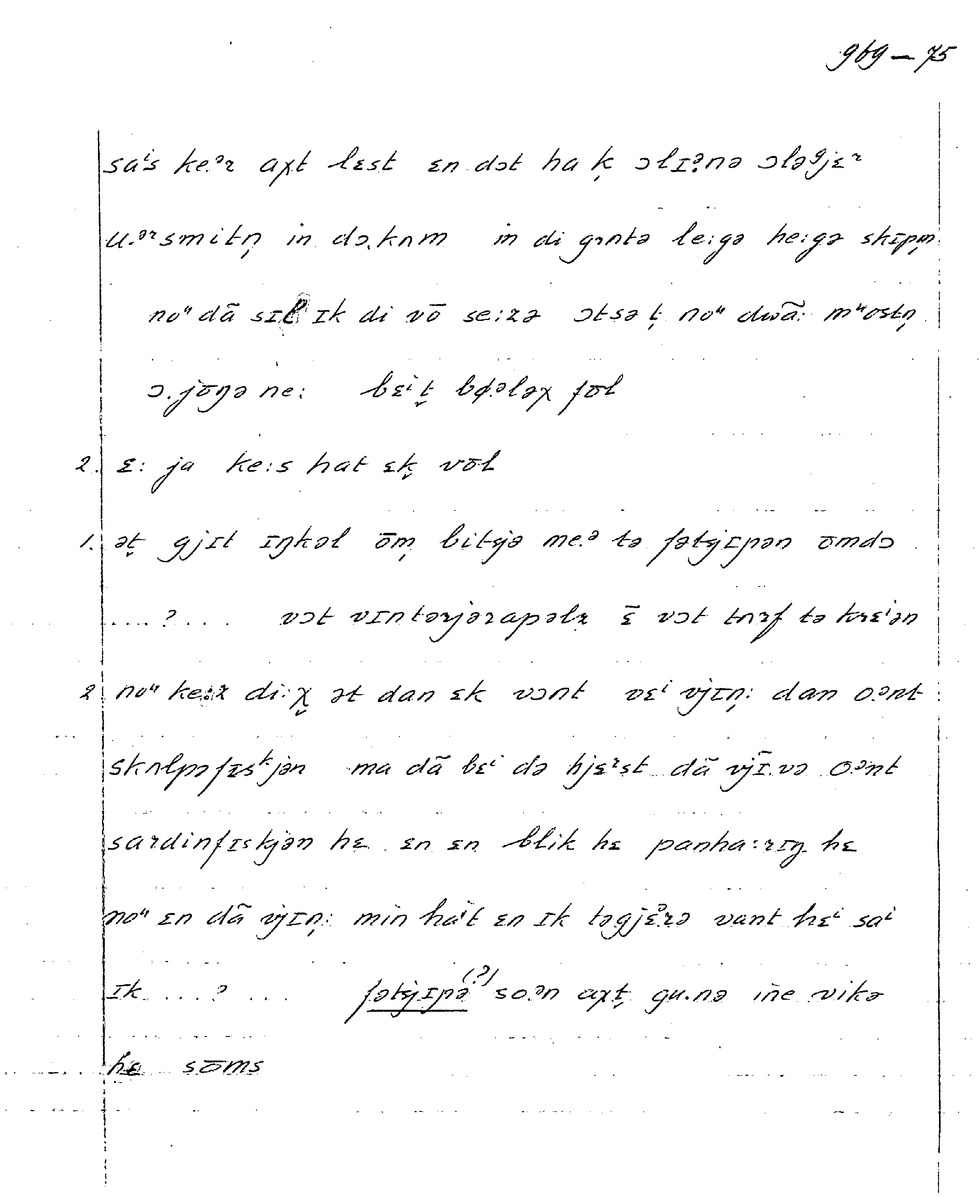 969 — 75
saⁱs ke.ᵊr aχt lɛst ɛn dɔt ha ķ ɔlɪ.ᵊnə ɔləgjɛʳ
u.ᵊʳsmitņ in dɔ.kʌm in di gɔntə le:gə he:gə skɪpm̩
noᵘ dā sɪl ɪk di vō se:zə ɔtsə ţ noᵘ dwā: mᵘostņ
ɔ.jōŋə ne: bɛⁱţ bφ.ᵊləχ fōl
2. ɛ: ja ke:s hat ɛķ vōl
1. əţ gjɪt ɪŋkəl ōm̩ bitjə me.ᵊ tə fətjɪpən omdɔ
....?... vɔt vɪntərjərapəlz ɛ̄ vɔt tʌrf tə krɛⁱən
2 noᵘ ke:z di:χ̬ ət dan ɛk vɔnt vɛⁱ vjɪņ: dan o.ᵊnt
skʌlpəfɪsᵏjən ma dā bɛⁱ də hjɛʳst dā vjɪ̄.və o.ᵊnt
sardinfɪskjən hɛ ɛn ɛn blik hɛ panha:rɪŋ hɛ
noᵘ ɛn dā vjɪņ: min ha't ɛn ɪk təgjɛ.ᵊrə vant hɛⁱ saⁱ
ɪk ....?... fətjɪpə (?) so.ᵊn aχţ gu.nə iñe vikə
hɛ sōms